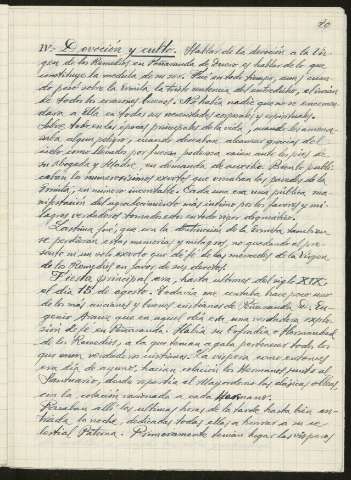 IV.- Devoción y culto. Hablar de la devoción a la Vir-
gen de los Remedios en Peñaranda de Duero es hablar de lo que
constituye la médula de su ser. Fué en todo tiempo, aun cuan-
do pesó sobre la Ermita la triste sentencia del entredicho, el imán
de todos los corazones buenos. No había nadie que no se encomen-
dara a Ella en todas sus necesidades corporales y espirituales.
Sobre todo en las épocas principales de la vida, cuando les amena-
zaba algún peligro, cuando deseaban alcanzar gracias del
cielo como llevados por fuerza poderosa caían ante los pies de
su Abogada y Madre, en demanda de auxilio. Bien lo publi-
caban los numerosísimos exvotos que ornaban las paredes de la
Ermita, en número incontable. Cada uno era una pública ma-
nifestación del agradecimiento más íntimo por los favores y mi-
lagros verdaderos
Lástima fué, que en la destrucción de la Ermita también
se perdieran estas memorias y milagros, no quedando al pre-
sente ni un solo exvoto que dé fe de las mercedes de la Virgen
de los Remedios en favor de sus devotos.
Fiesta principal era, hasta últimos del siglo XIX,
el día 15 de agosto. Todavía me contaba hace poco uno
de los más ancianos y buenos cristianos de Peñaranda D. Eu-
genio Arauz que en aquel día era una verdadera explo-
sión de fe en Peñaranda. Había su Cofradía o Hermandad
de los Remedios, a la que tenían a gala pertenecer todos los
que eran verdaderos cristianos. La víspera como entonces
era día de ayuno, hacían colación los Hermanos junto al
Santuario, donde repartía el Mayordomo las clásicas ollas,
con la colación razonada a cada Hermano.
Pasaban allí las últimas horas de la tarde hasta bien en-
trada la noche, dedicadas todas ellas a honrar a su ce-
lestial Patrona. Primeramente tenían lugar las vísperas